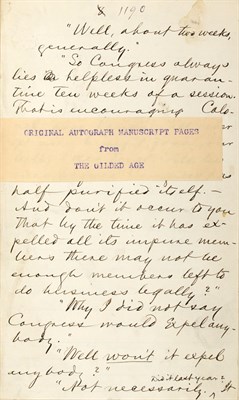 1190
"Well, about two weeks,
generally."
"So Congress always
lies helpless in quaran-
tine ten weeks of a session.
That is encouraging. Colo-
ORIGINAL AUTOGRAPH MANUSCRIPT PAGES
from
THE GILDED AGE
half purified itself.—
And don't it occur to you
that by the time it has ex-
pelled all its impure mem-
bers there may not be
enough members left to
do business legally?"
"Why I did not say
Congress would expel any-
body."
"Well won't it expel
anybody?"
did it last year?
"Not necessarily. It